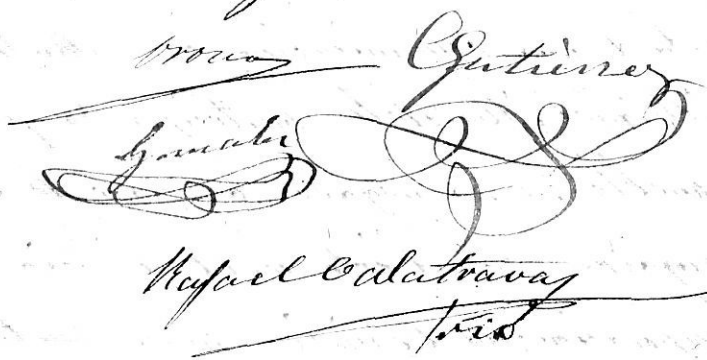 Gutiérrez
Gonzalez
Rafael Calatrava
Srio